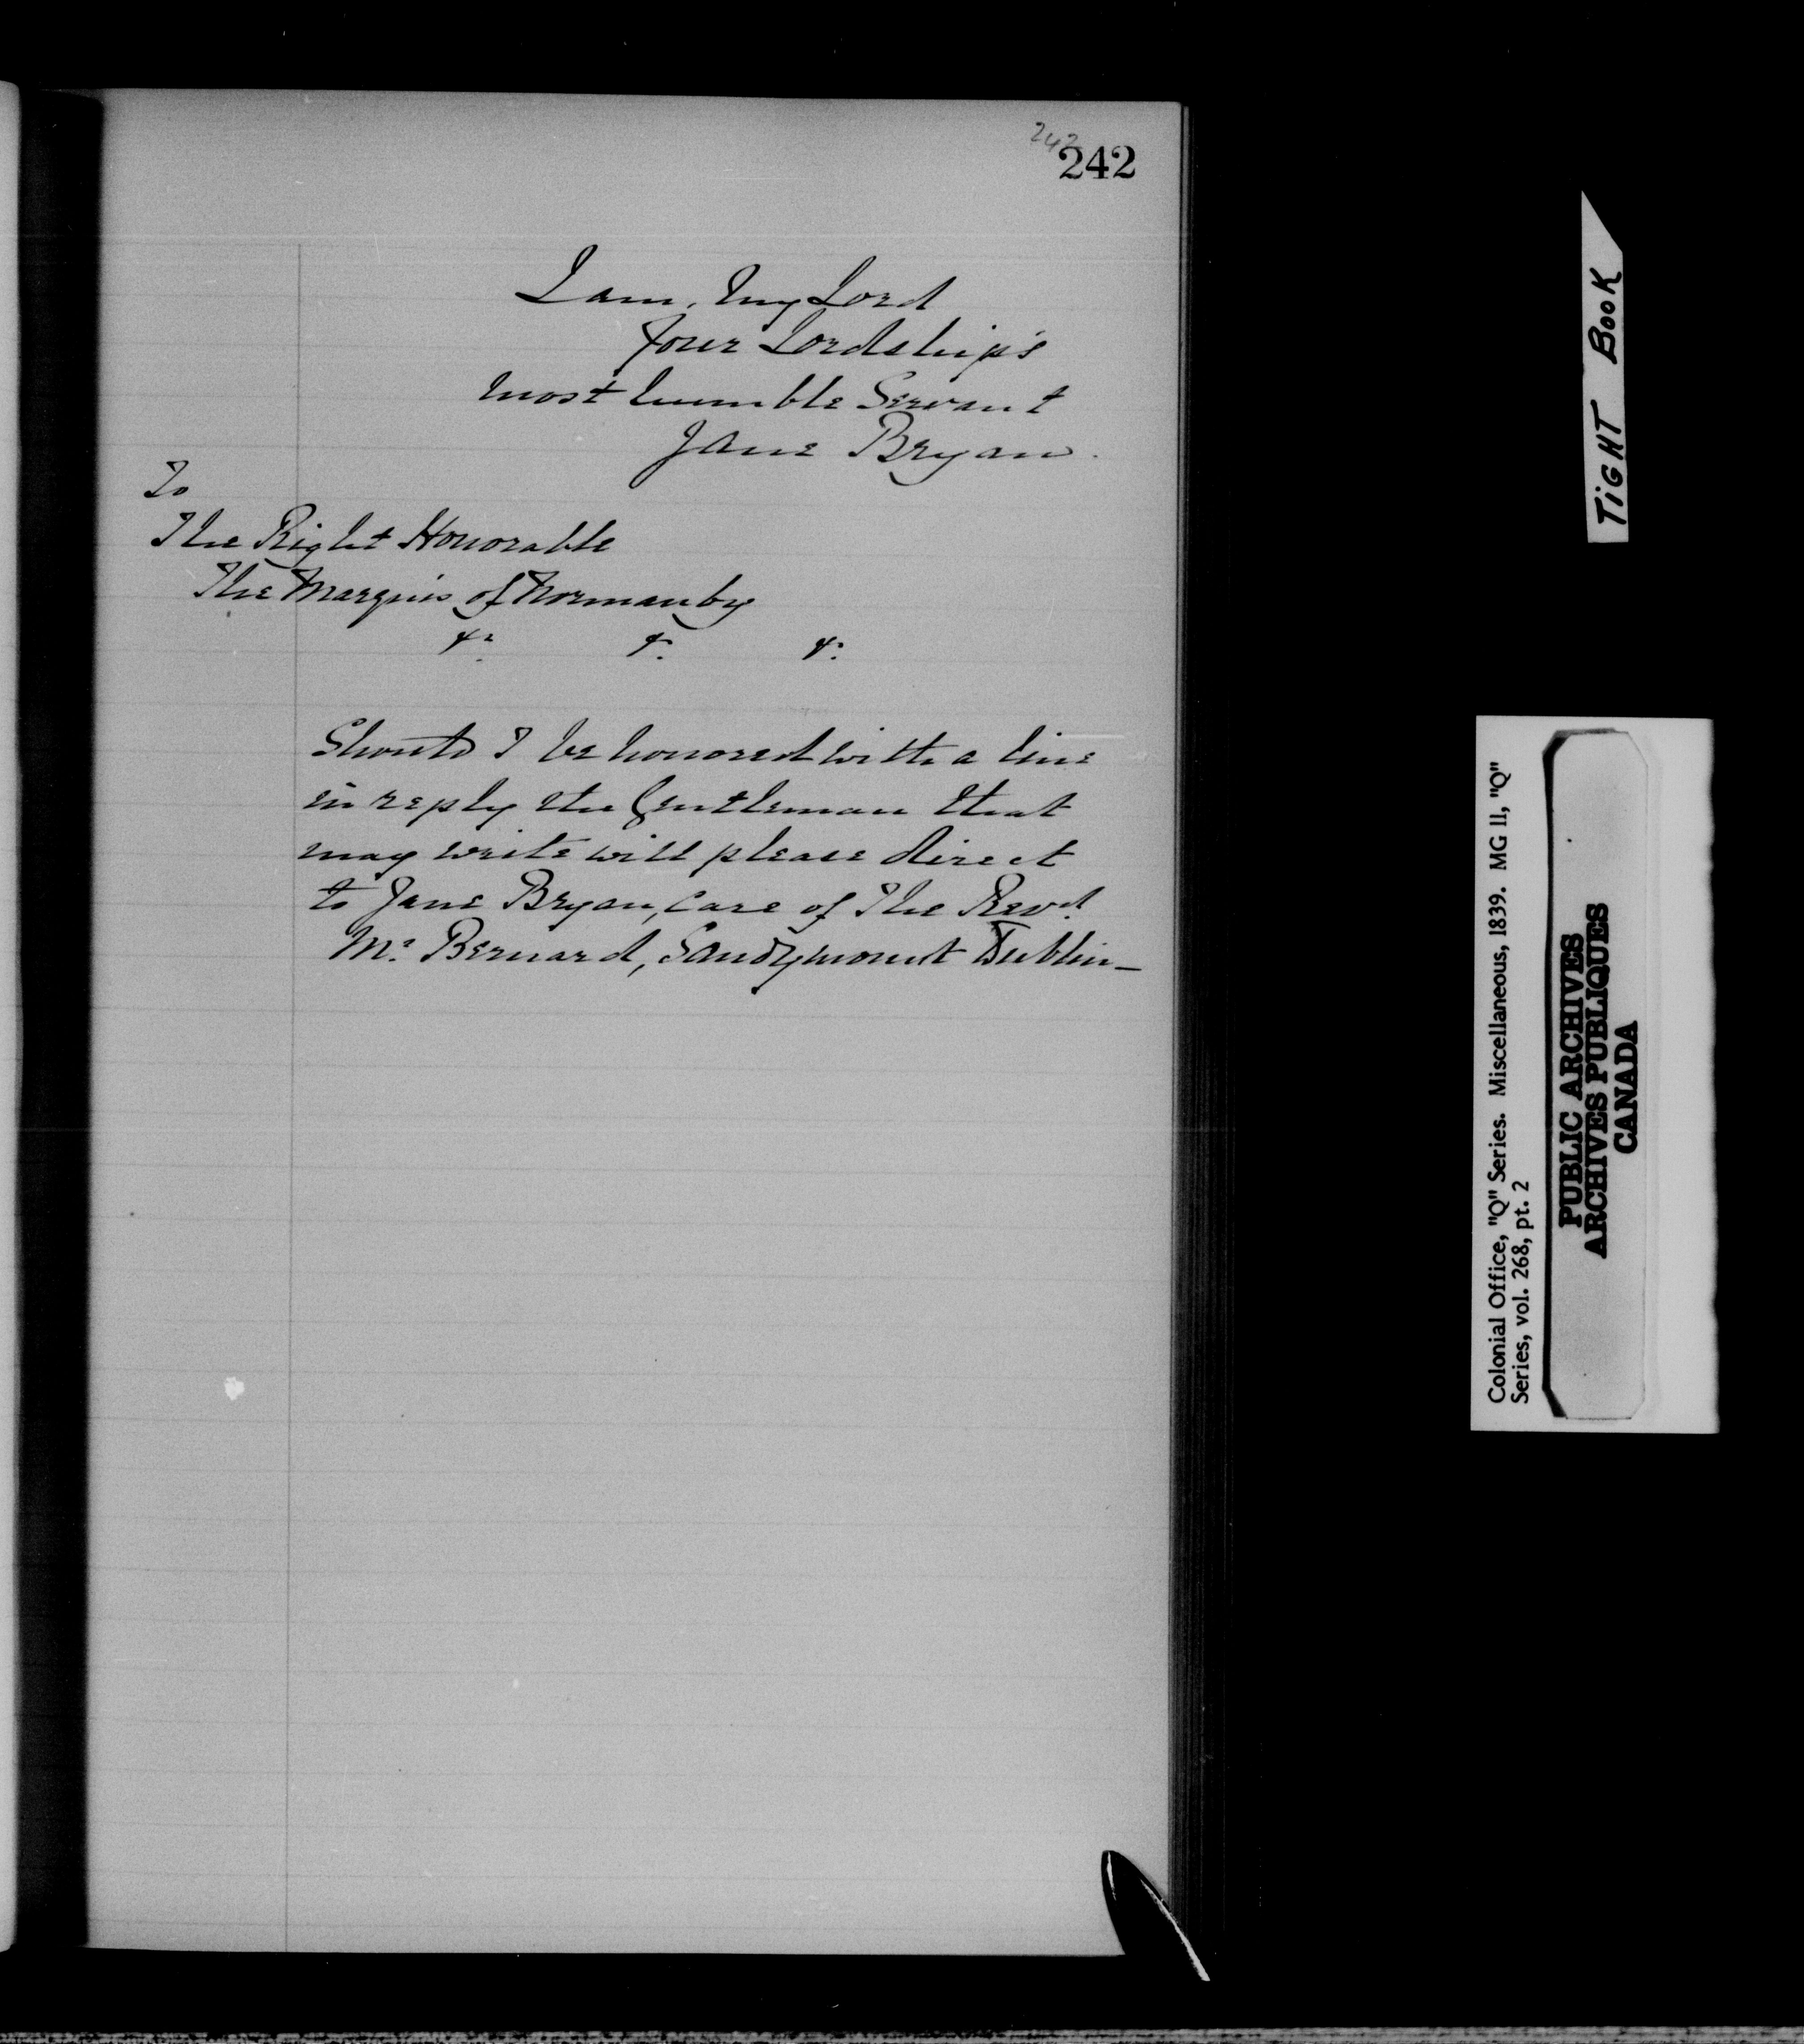 242
242
I am, My Lord
Your Lordship's
most humble Servant
Jane Bryan.
To
The Right Honorable
The Marquis of Normanby
&c. &c. &c.
Should I be honored with a line
in reply the Gentleman that
may write will please direct
to Jane Bryan, care of The Revd.
Mr. Bernard, Sandymount Dublin_
TIGHT BOOK
Colonial Office, "Q" Series. Miscellaneous, 1839. MG 11, "Q"
Series, vol. 268, pt. 2
PUBLIC ARCHIVES
ARCHIVES PUBLIQUES
CANADA